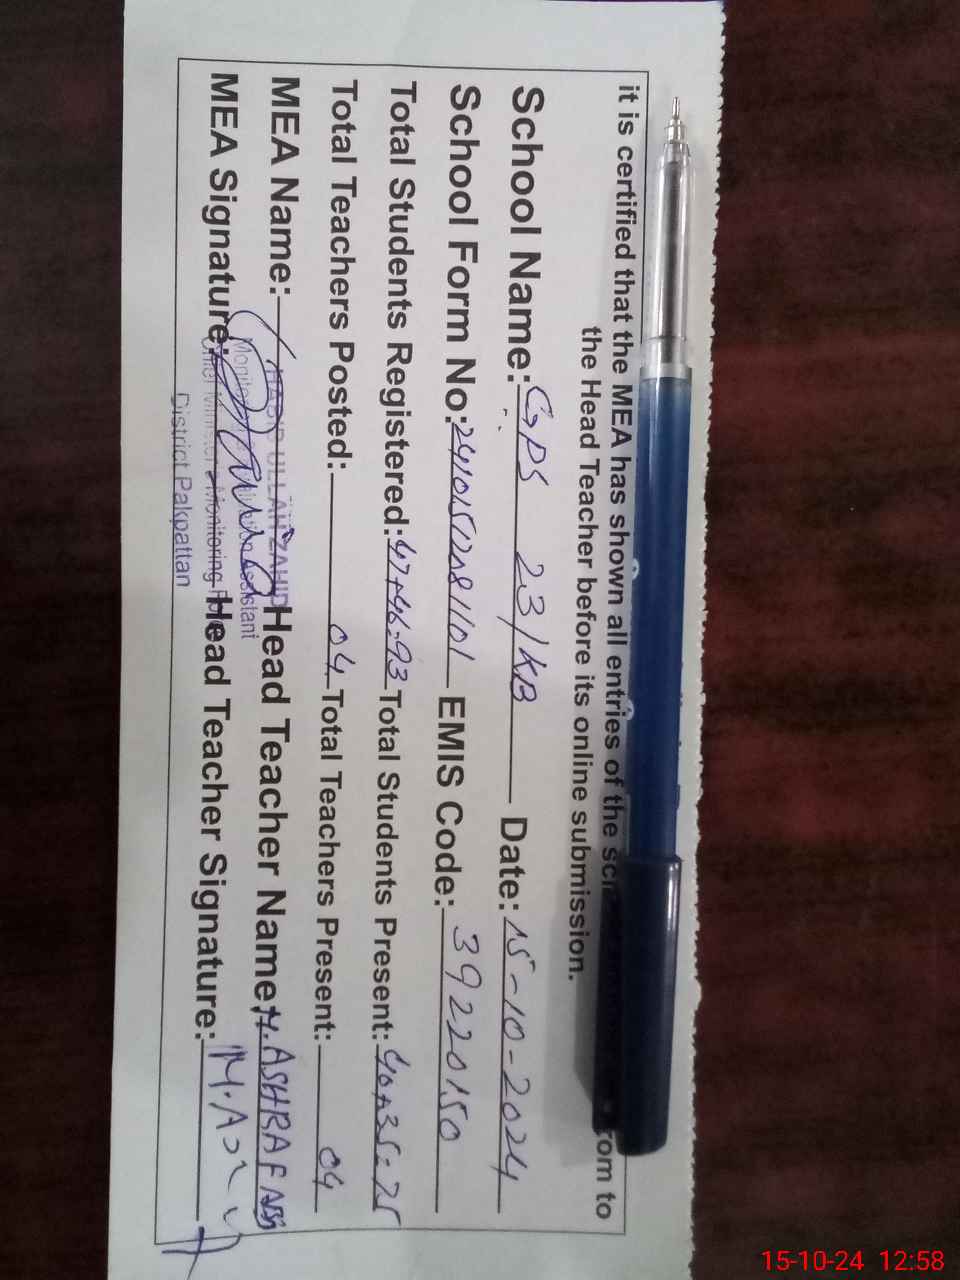 it is certified that the MEA has shown all entries of the sc from to
the Head Teacher before its online submission.
School Name: GPS 23/KB Date: 15-10-2024
School Form No: EMIS Code: 39220150
Total Students Registered: 47+46=93 Total Students Present: 40+35=75
Total Teachers Posted: 04 Total Teachers Present: 04
MEA Name: HABIB ULLAH ZAHID Head Teacher Name: M. ASHRAF
Monitoring Assistant
MEA Signature: Head Teacher Signature: M.A
Chief Minister's Monitoring
District Pakpattan
15-10-24 12:58